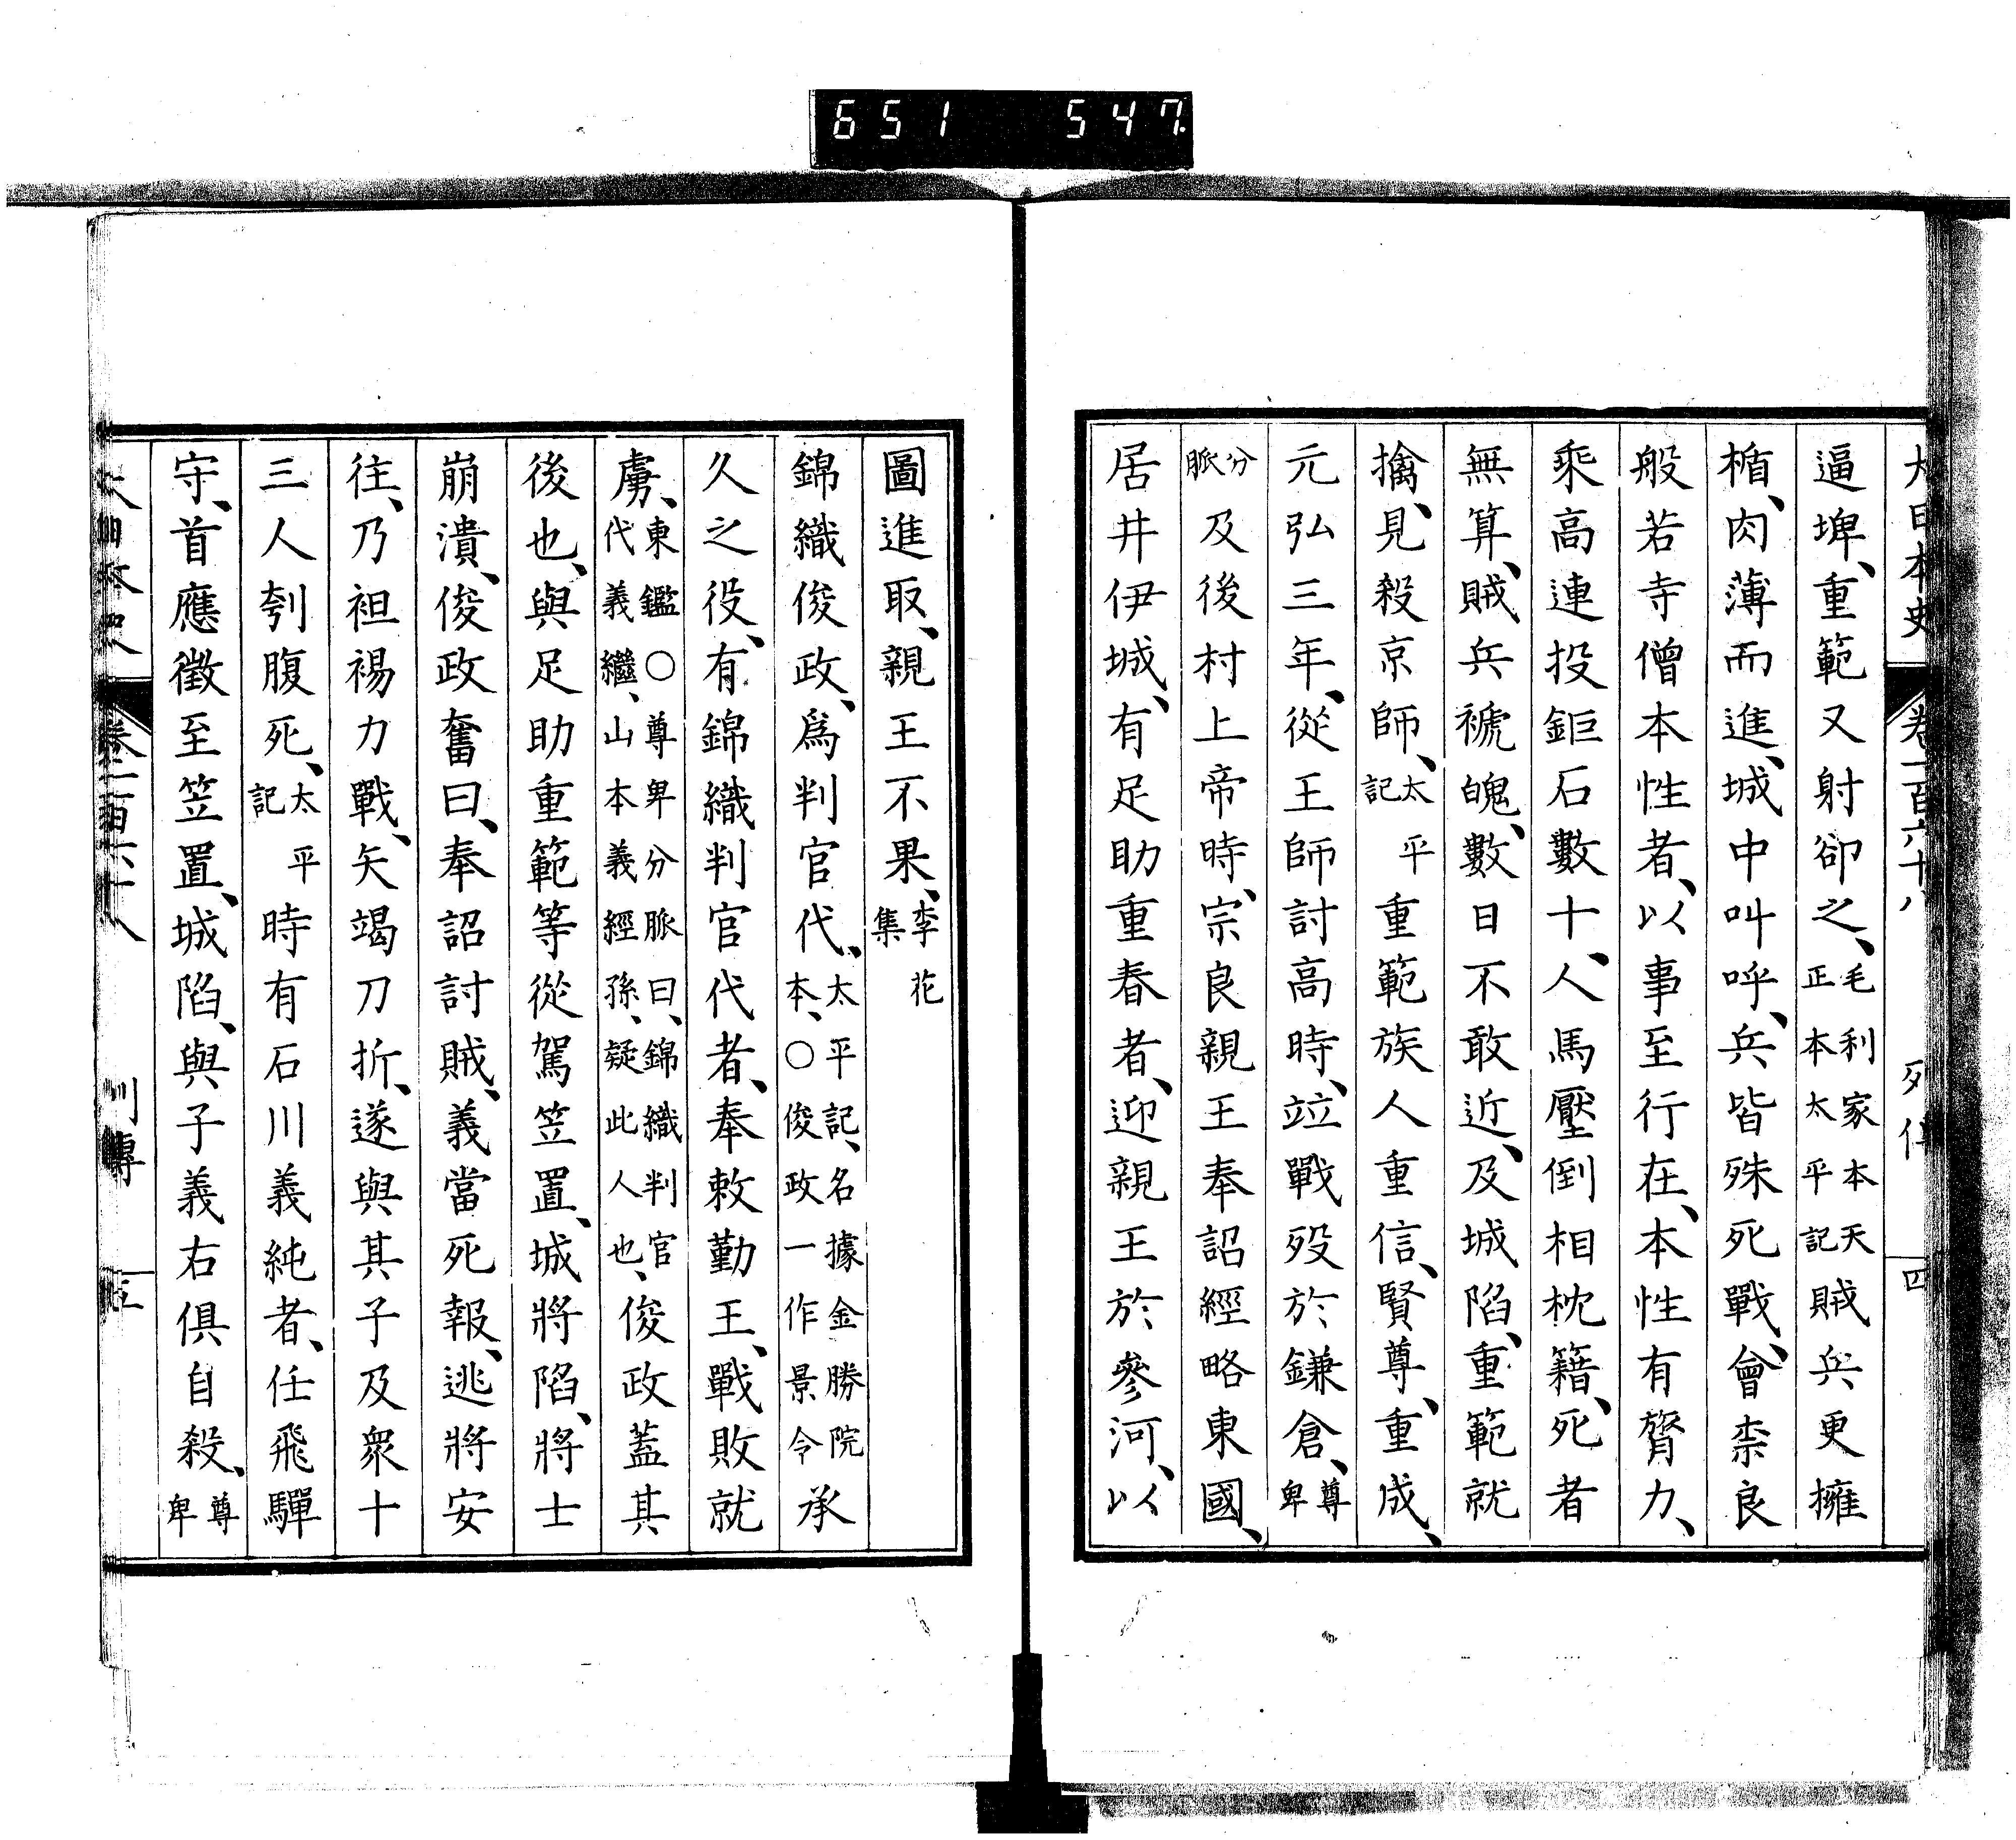 651 547
大日本史 卷一百六十八 列傳 四
逼埤、重範又射卻之、毛利家本天正本太平記賊兵更擁
楯、肉薄而進、城中叫呼、兵皆殊死戰、會柰良
般若寺僧本性者、以事至行在、本性有膂力、
乘高連投鉅石數十、人馬壓倒相枕籍、死者
無算、賊兵褫魄、數日不敢近、及城陷、重範就
擒、見殺京師、太平記重範族人重信、賢尊、重成、
元弘三年、從王師討高時、竝戰歿於鎌倉、尊卑
分脈及後村上帝時、宗良親王奉詔經略東國、
居井伊城、有足助重春者、迎親王於參河、以
圖進取、親王不果、李花集
錦織俊政、爲判官代、太平記、名據金勝院本、○俊政一作景令承
久之役、有錦織判官代者、奉敕勤王、戰敗就
虜、東鑑○尊卑分脈曰、錦織判官代義繼、山本義經孫、疑此人也、俊政蓋其
後也、與足助重範等從駕笠置、城將陷、將士
崩潰、俊政奮曰、奉詔討賊、義當死報、逃將安
往、乃袒裼力戰、矢竭刀折、遂與其子及衆十
三人刳腹死、太平記時有石川義純者、任飛驒
守、首應徵至笠置、城陷、與子義右俱自殺、尊卑
列傳 五